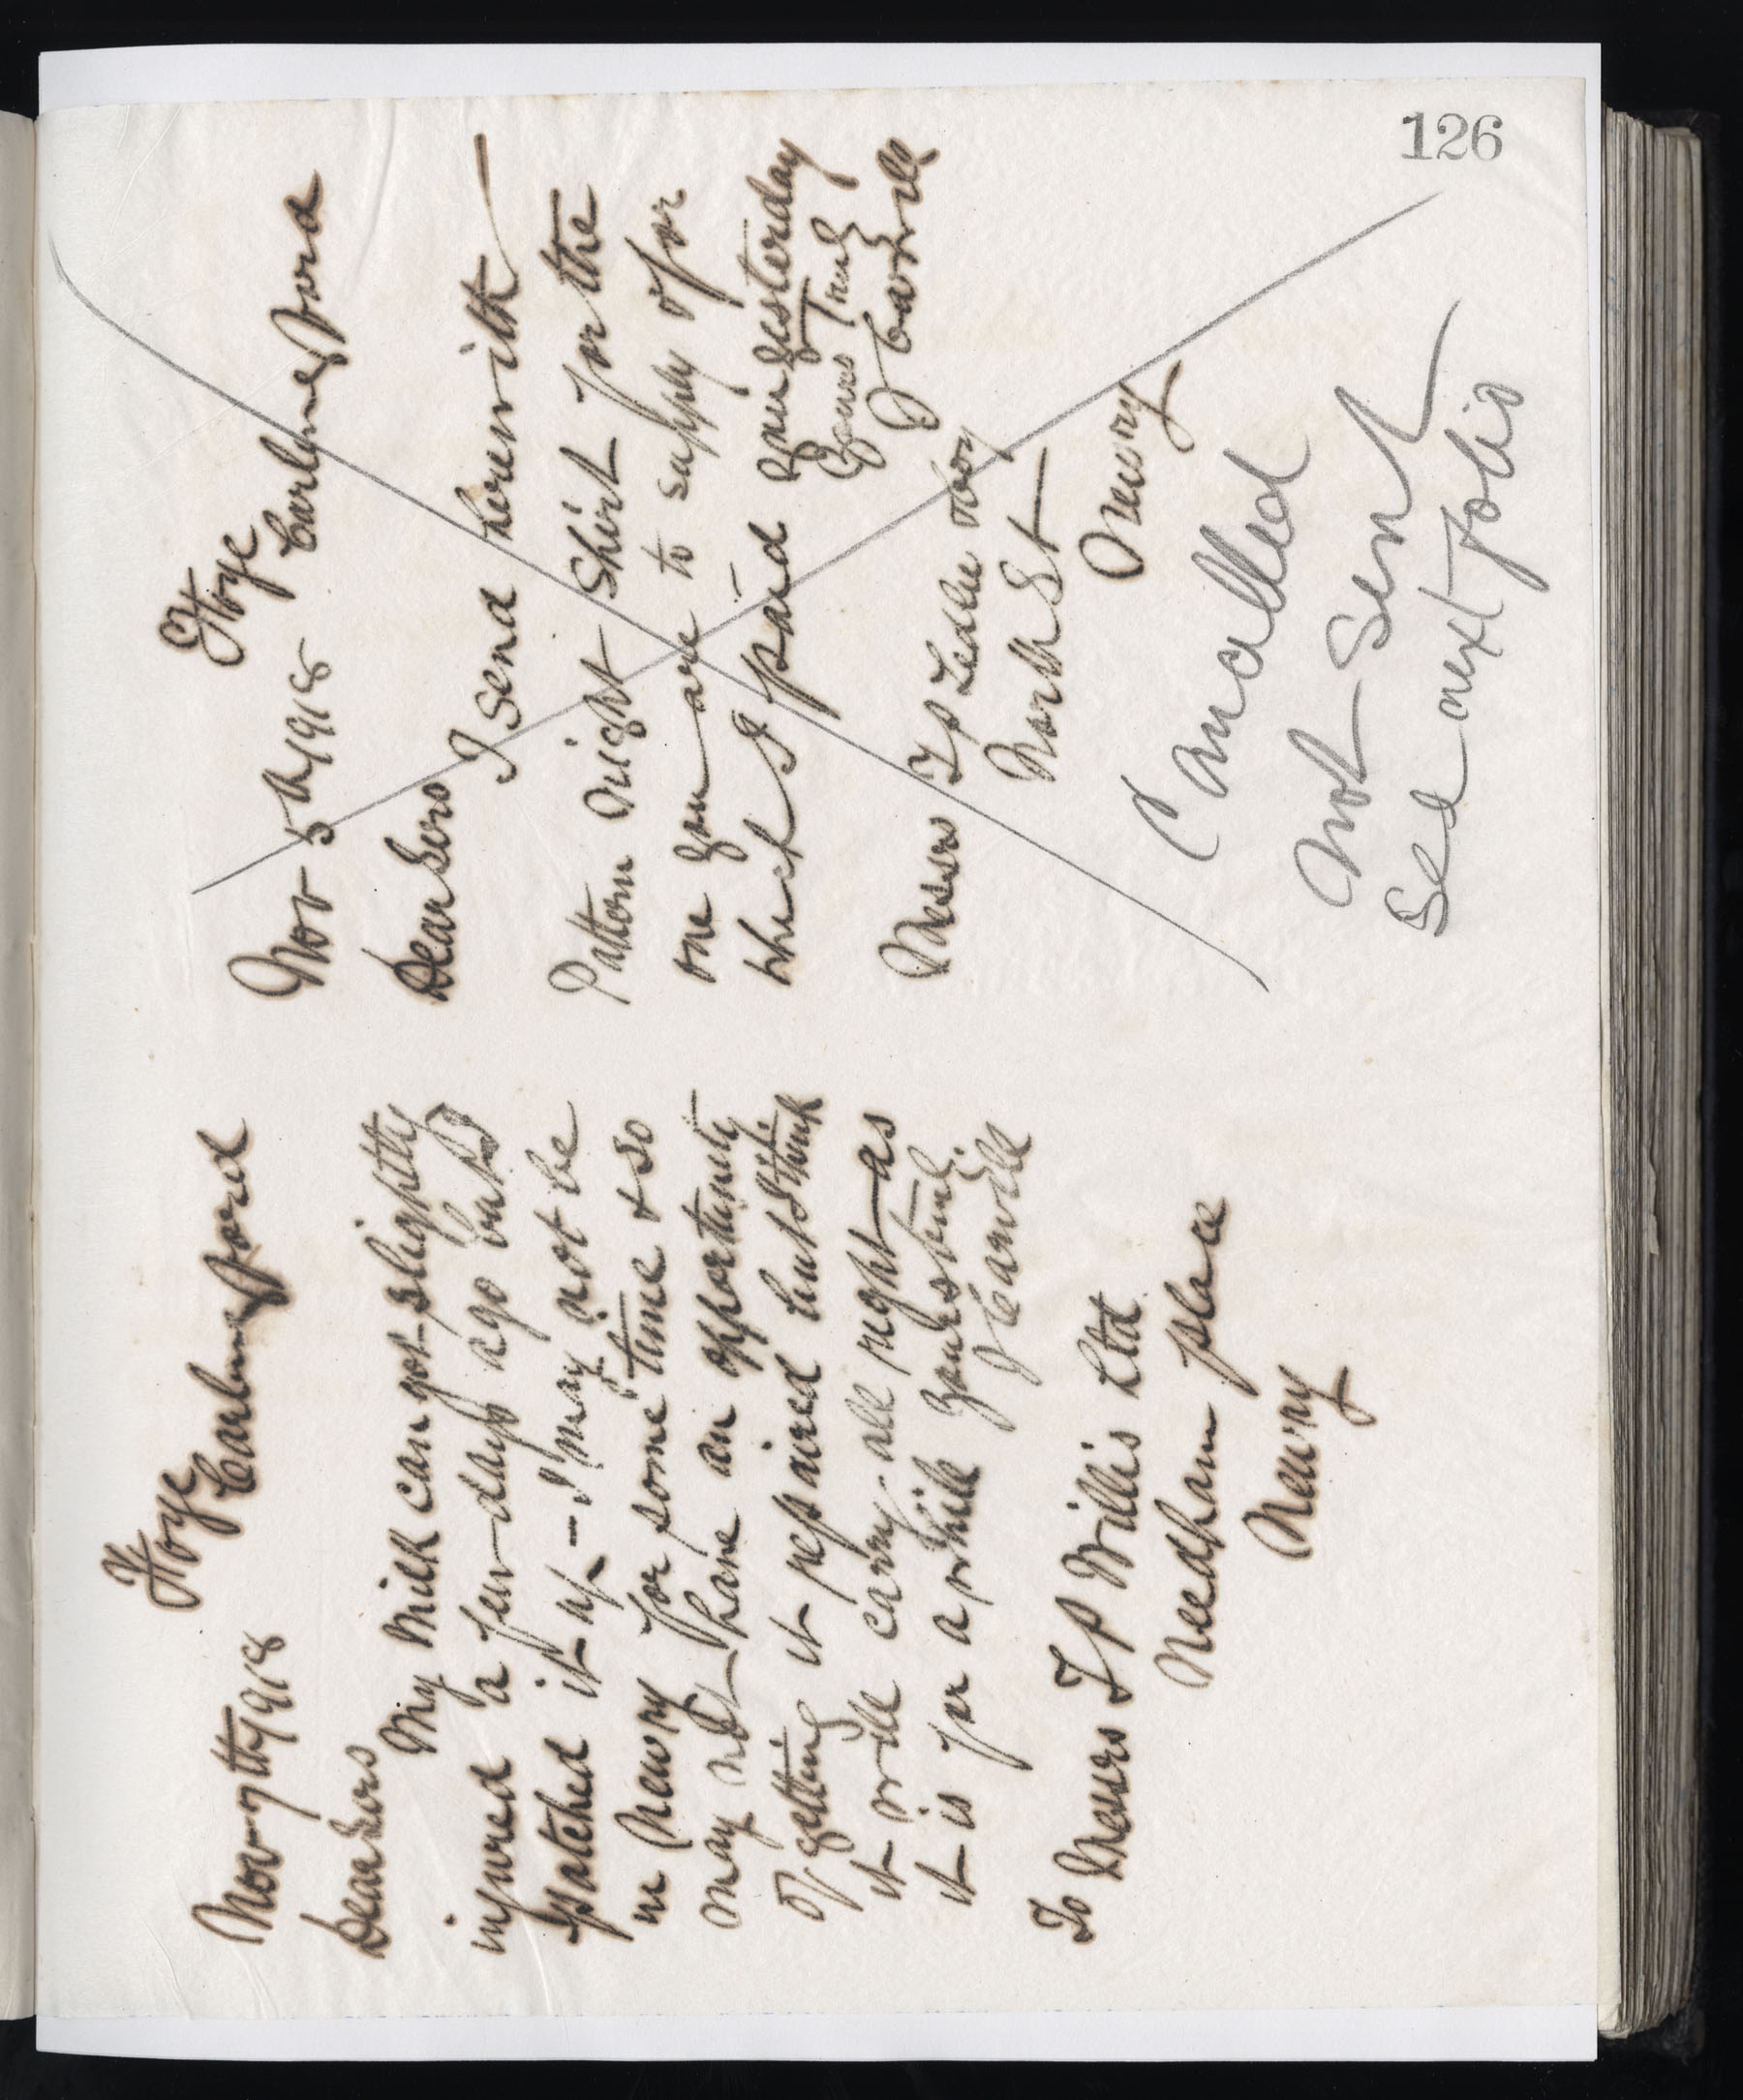 126
Foye
Carlingford
Nov 7th 1918
Dear Sirs
My Milk can got slightly
injured a few days ago but I
patched it up - I may not be
in Newry for some time & so
may not have an opportunity
of getting it repaired but I think
it will carry all right as
it is for a while yours truly
J Carvill
To Messrs T P Willis Ltd
Needham place
Newry
Foye
Carlingford
Nov 5th 1918
Dear Sirs
I send herewith
Pattern Night Shirt for the
one you are to supply of or
which I paid you yesterday
Yours Truly
J Carvill
Messrs T P Leslie
North St
Newry
Cancelled
Not Sent
See next folio